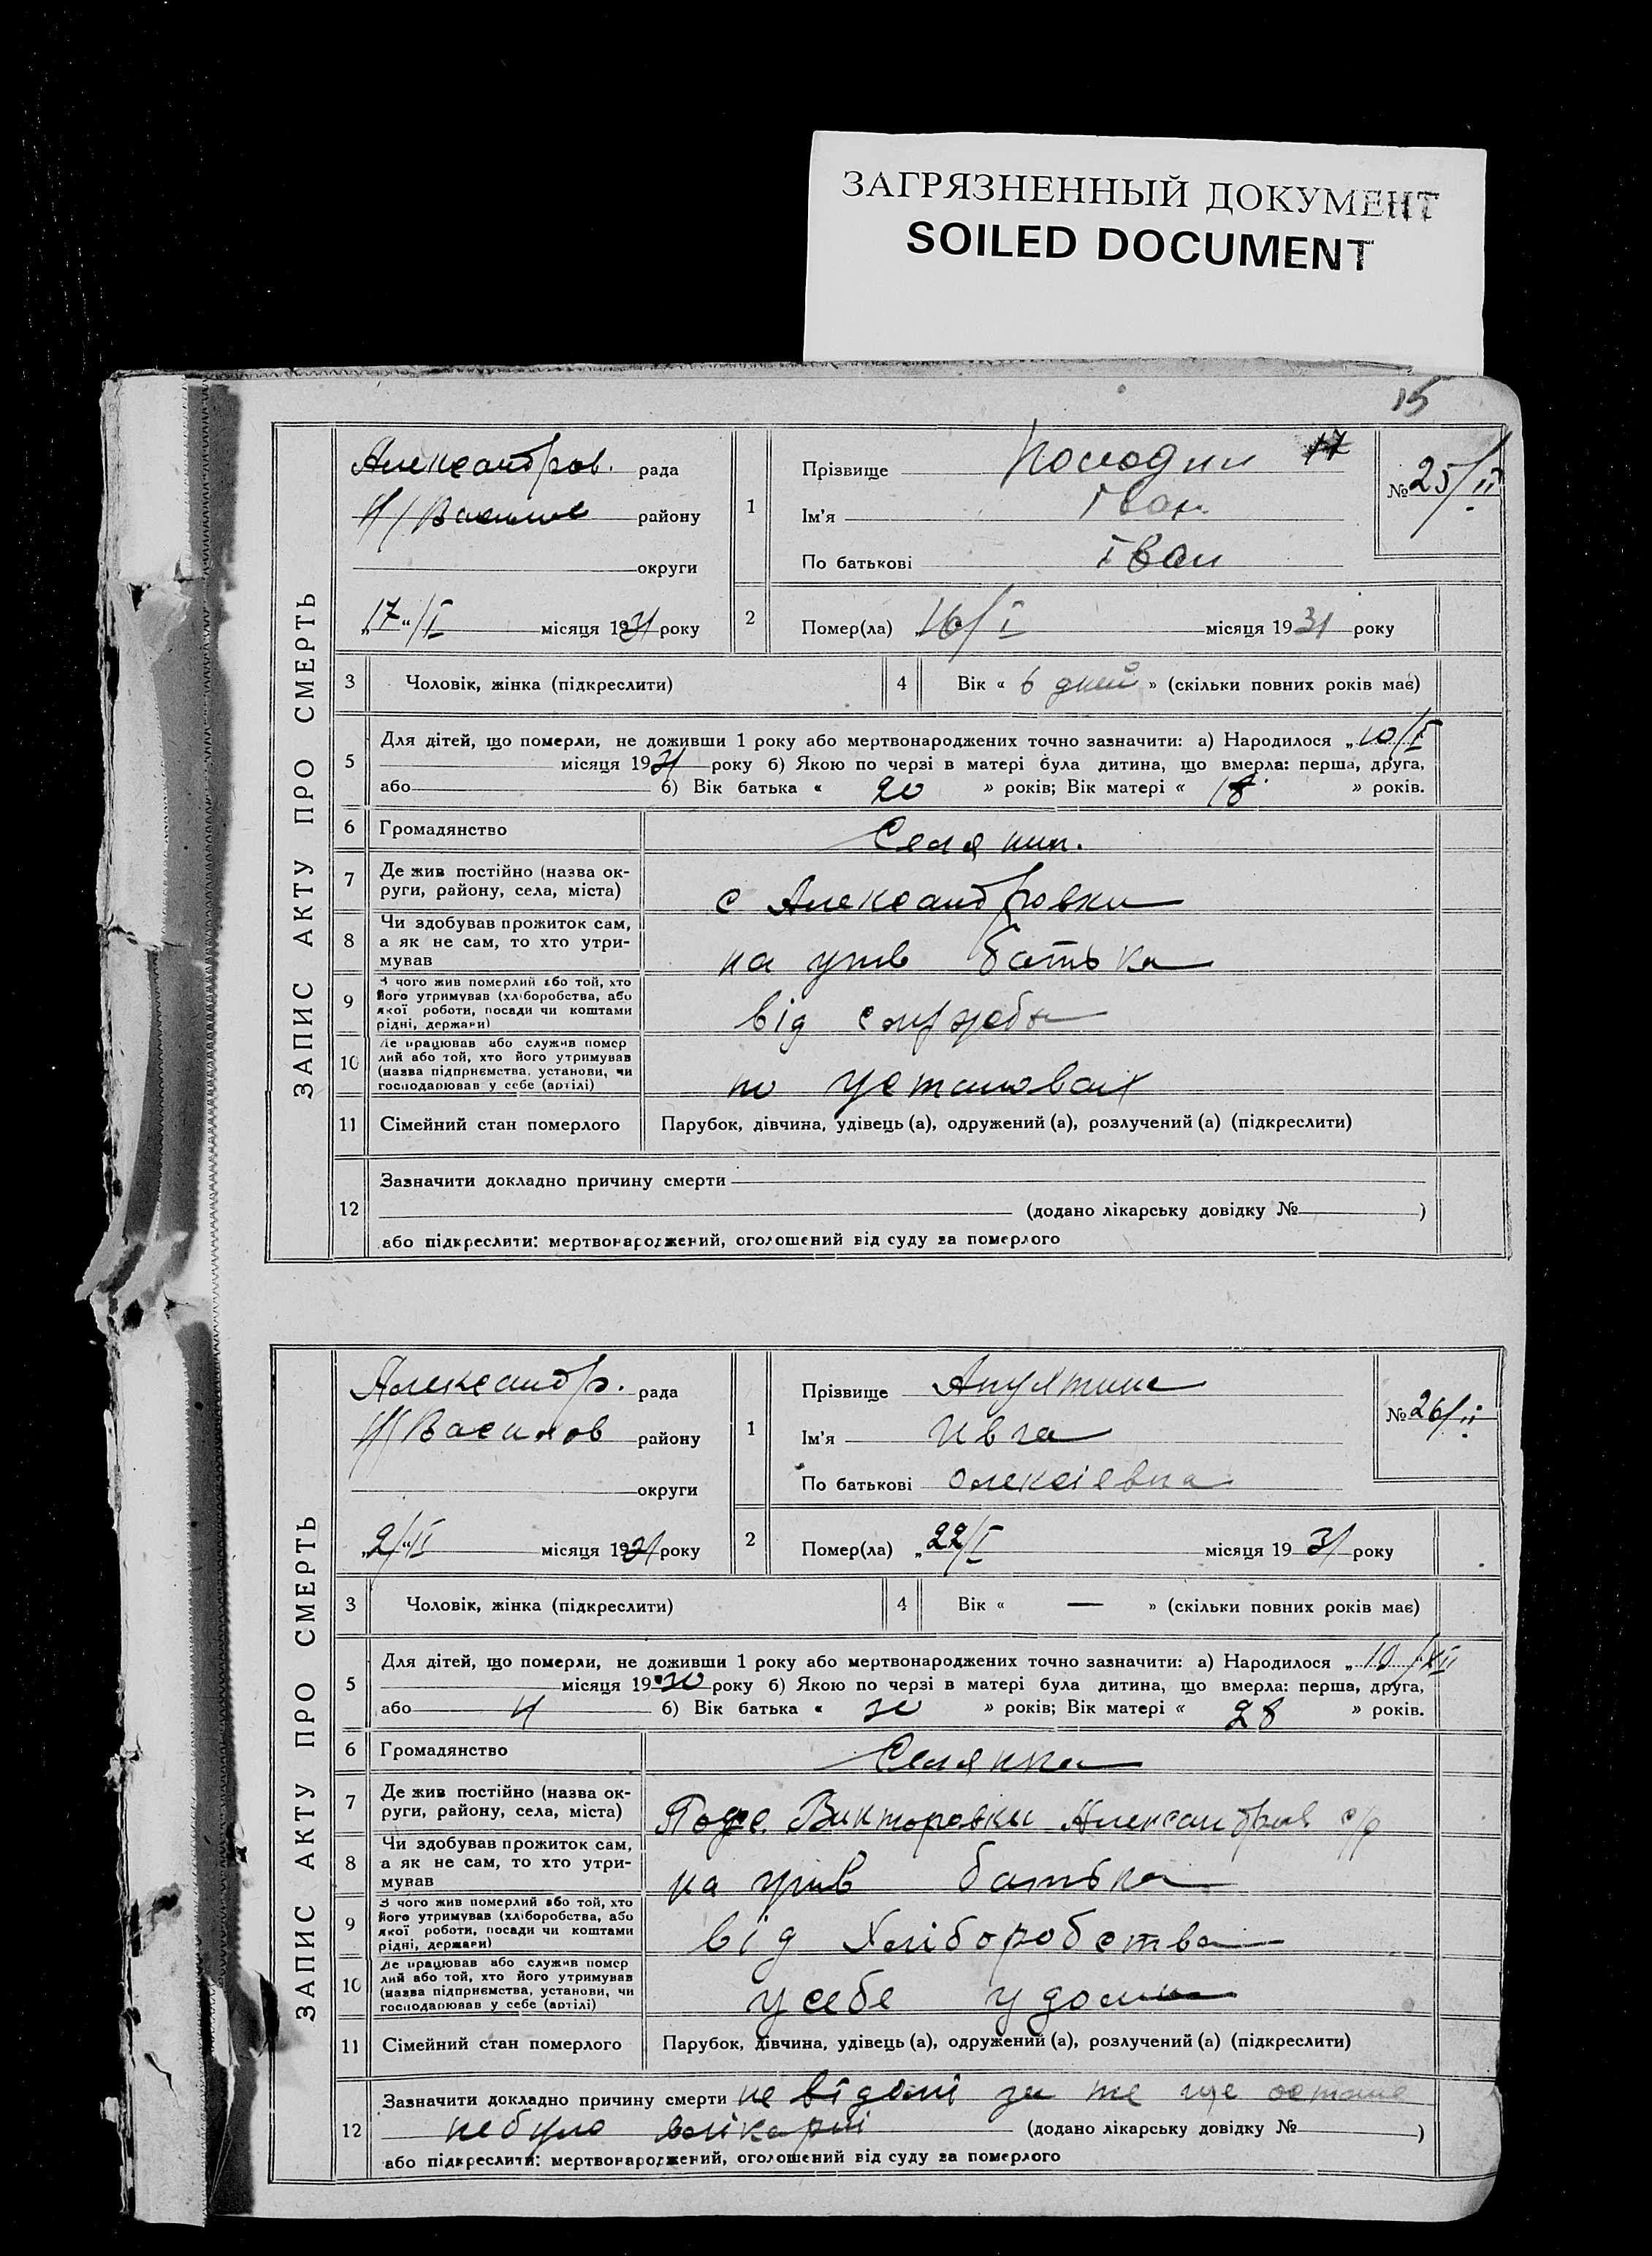 ЗАГРЯЗНЕННЫЙ ДОКУМЕНТ
SOILED DOCUMENT
15
ЗАПИС АКТУ ПРО СМЕРТЬ
Александров. рада
Н/Васил района
округи
"17"/I місяця 1931 року
1
Прізвище 17
Ім'я Іван
По батькові Іван
№ 25/II
2
Помер(ла) "16/I місяця 1931 року
3 Чоловік, жінка (підкреслити)
4 Вік « 6 дней » (скільки повних років має)
5
Для дітей, що померли, не доживши 1 року або мертвонароджених точно зазначити: а) Народилося „10/I
місяця 1931 року б) Якою по черзі в матері була дитина, що вмерла: перша, друга,
або б) Вік батька « 20 » років; Вік матері « 18 » років.
6 Громадянство Селянин.
7 Де жив постійно (назва ок-
руги, району, села, міста) с Александровки
8 Чи здобував прожиток сам,
а як не сам, то хто утри-
мував на утв батька
9 З чого жив померлий або той, хто
його утримував (хліборобства, або
якої роботи, посади чи коштами
рідні, держави) від службы
10 Де працював або служив помер
лий або той, хто його утримував
(назва підприємства, установи, чи
господарював у себе (артілі) по установах
11 Сімейний стан померлого Парубок, дівчина, удівець (а), одружений (а), розлучений (а) (підкреслити)
12
Зазначити докладно причину смерти
(додано лікарську довідку № )
або підкреслити: мертвонароджений, оголошений від суду за померлого
ЗАПИС АКТУ ПРО СМЕРТЬ
Александр. рада
Н/Васильов району
округи
„2/"II місяця 1931 року
1
Прізвище Апухтина
Ім'я Ивга
По батькові Олексіевна
№ 26/II
2
Помер(ла) „22/I місяця 1931 року
3 Чоловік, жінка (підкреслити)
4 Вік « — » (скільки повних років має)
5
Для дітей, що померли, не доживши 1 року або мертвонароджених точно зазначити: а) Народилося „10/XII
місяця 1930 року б) Якою по черзі в матері була дитина, що вмерла: перша, друга,
або 4 б) Вік батька « 30 » років; Вік матері « 28 » років.
6 Громадянство Селянка
7 Де жив постійно (назва ок-
руги, району, села, міста) Викторовки Александров с/р
8 Чи здобував прожиток сам,
а як не сам, то хто утри-
мував на утв батька
9 З чого жив померлий або той, хто
його утримував (хліборобства, або
якої роботи, посади чи коштами
рідні, держави) від Хліборобства
10 Де працював або служив помер
лий або той, хто його утримував
(назва підприємства, установи, чи
господарював у себе (артілі) у себе у доми
11 Сімейний стан померлого Парубок, дівчина, удівець (а), одружений (а), розлучений (а) (підкреслити)
12
Зазначити докладно причину смерти не відомі за те що
небуло (додано лікарську довідку № )
або підкреслити: мертвонароджений, оголошений від суду за померлого